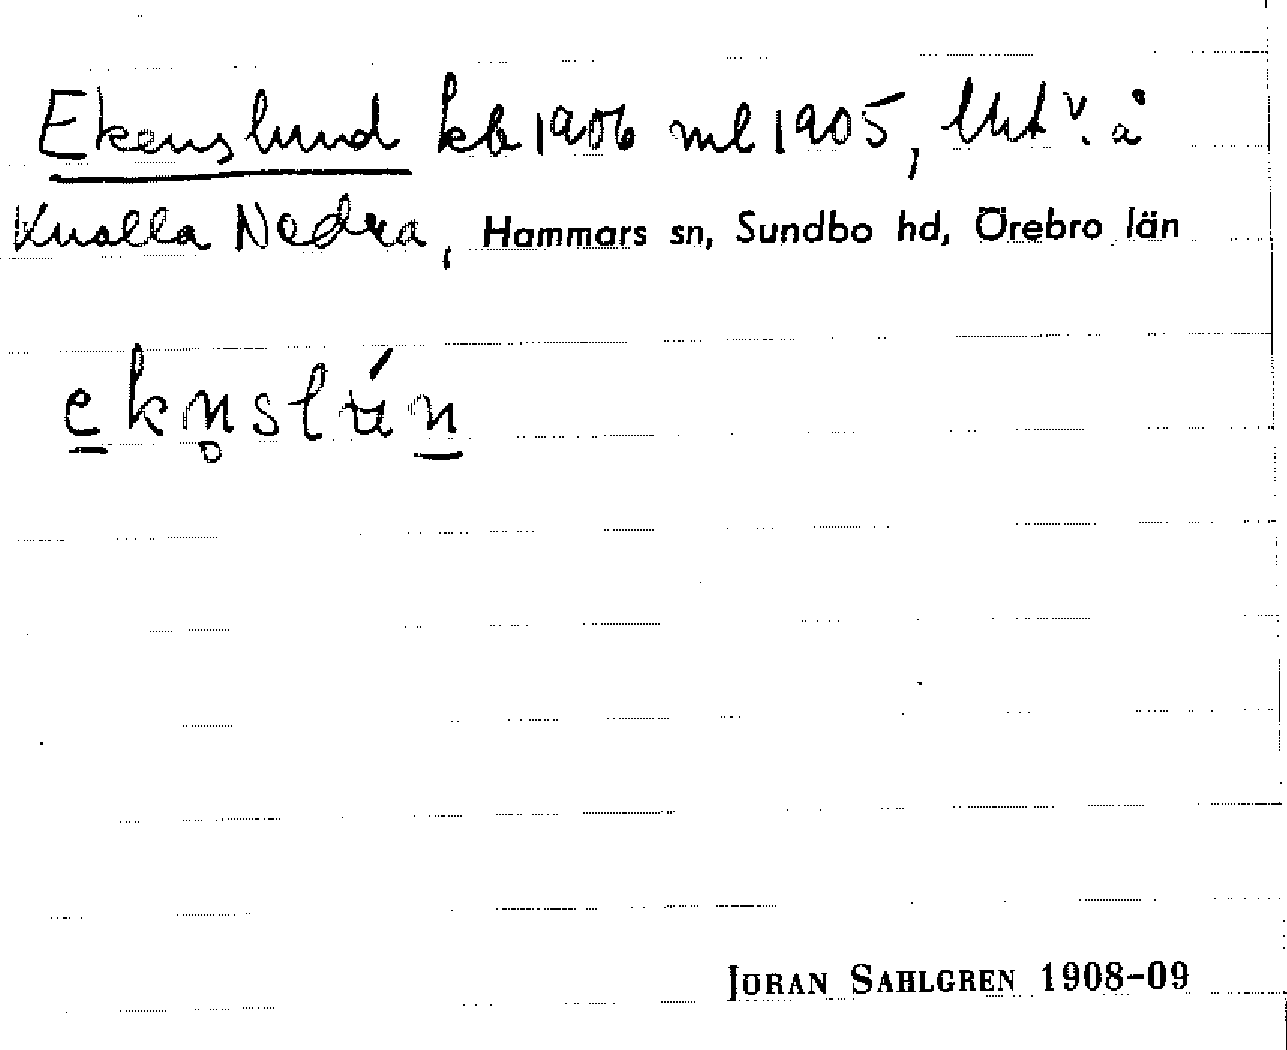 Ekenslund kb 1906 ml 1905, lht v. å
Knalla Nedra, Hammars sn, Sundbo hd, Örebro län
e̲kn̥slún̲
JÖRAN SAHLGREN 1908-09